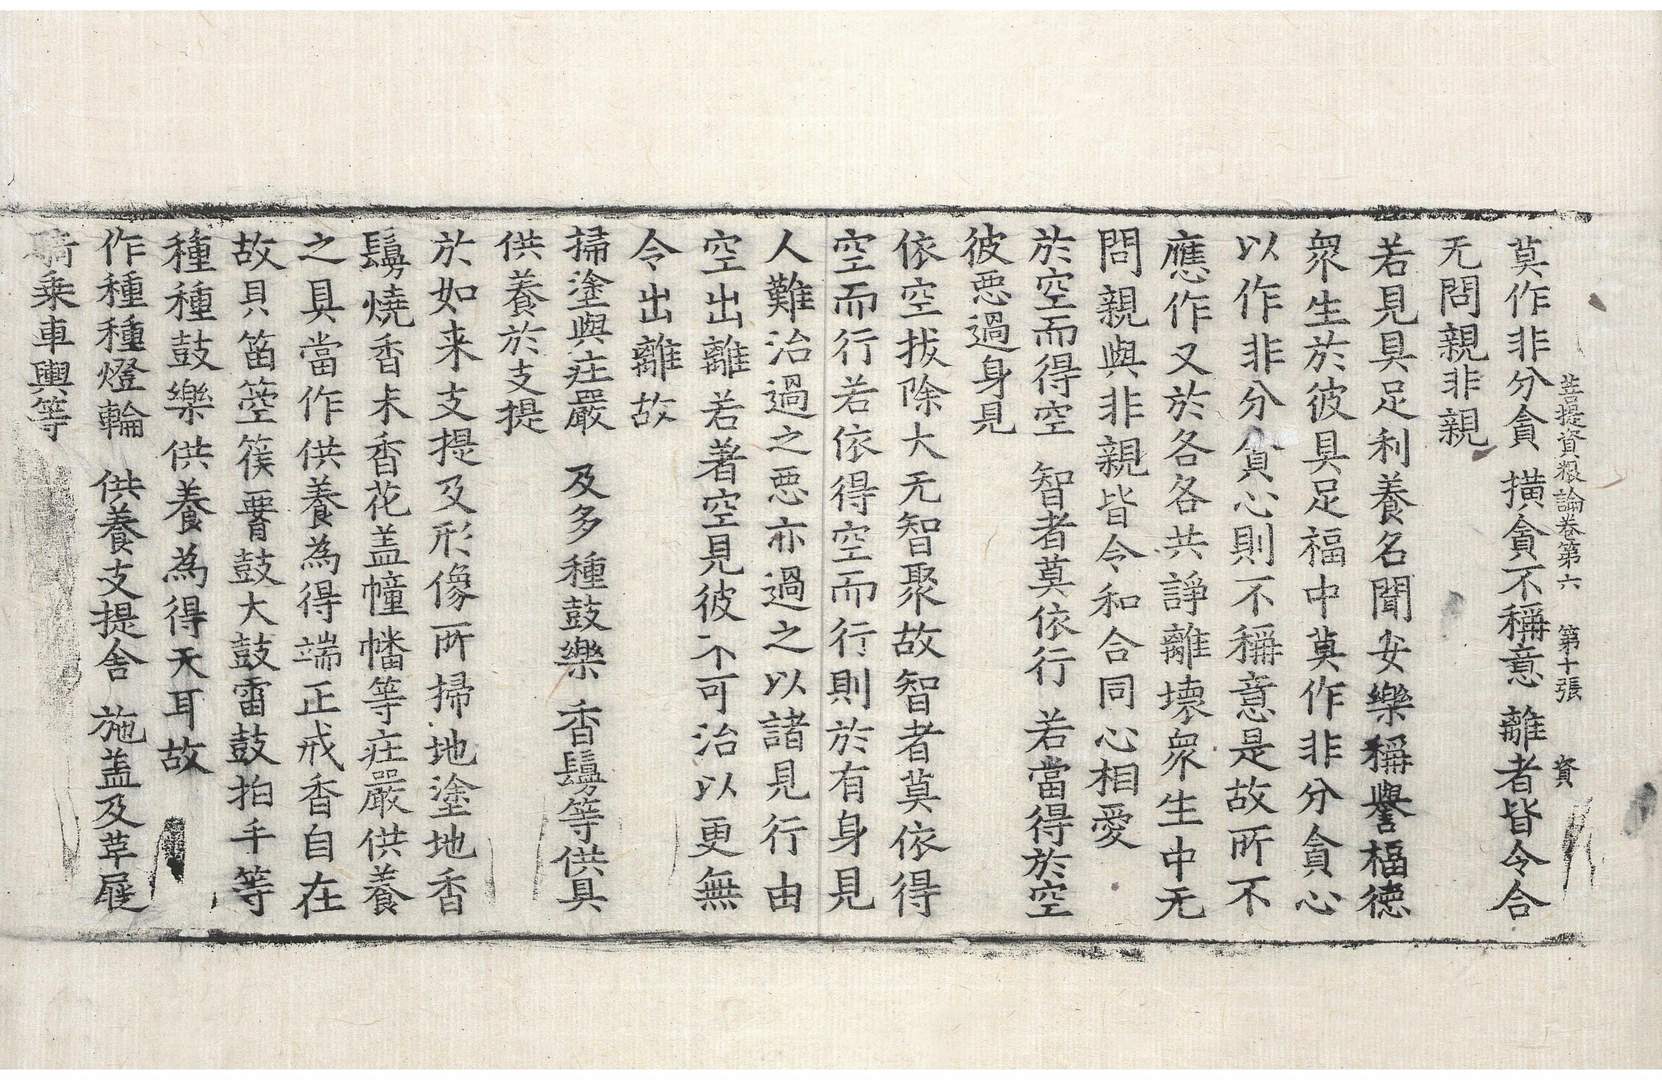 菩提資粮論卷第六 第十張 資
莫作非分貪 撗貪不稱意 離者皆令合
无問親非親
若見具足利養名聞安樂稱譽福德
衆生於彼具足福中莫作非分貪心
以作非分貪心則不稱意是故所不
應作又於各各共諍離壊衆生中无
問親與非親皆令和合同心相愛
於空而得空 智者莫依行 若當得於空
彼惡過身見
依空拔除大无智聚故智者莫依得
空而行若依得空而行則於有身見
人難治過之惡亦過之以諸見行由
空出離若著空見彼不可治以更無
令出離故
掃塗與莊嚴 及多種鼓樂 香鬘等供具
供養於支提
於如来支提及形像所掃地塗地香
鬘燒香末香花盖幢幡等莊嚴供養
之具當作供養為得端正戒香自在
故貝笛箜篌𦝫鼓大鼓雷鼓拍手等
種種鼓樂供養為得天耳故
作種種燈輪 供養支提舍 施盖及草屣
騎乗車輿等